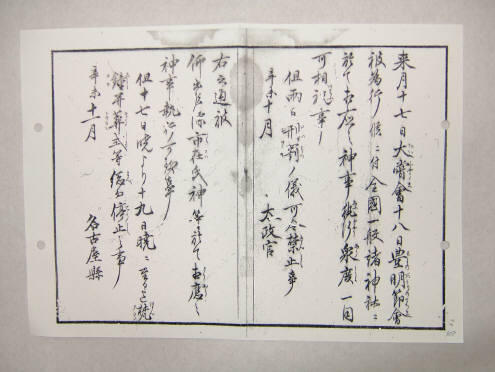 来月十七日大嘗會十八日豊明節會
被為行候ニ付全國一般諸神社ニ
於て 神事執行衆庶一同
可相祝事
但両日刑罰ノ儀可令禁止事
辛未十月 太政官
右之通被
仰出候條市在氏神等ニ於て
神事執行可致事
但十七日暁より十九日暁ニ至る迠梵
鐘并葬式等 停止之事
辛未十一月 名古屋縣